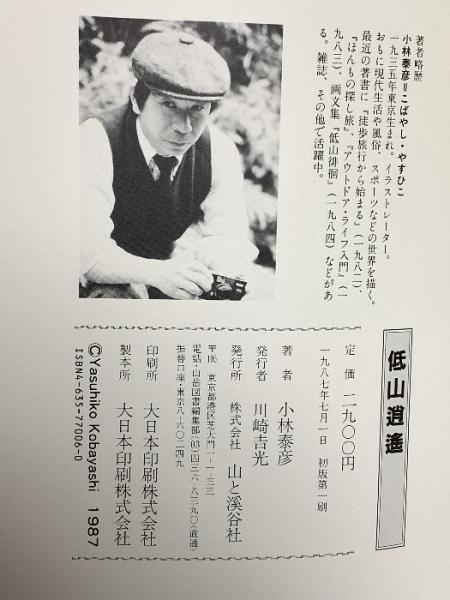 著者略歴
小林泰彦＝こばやし・やすひこ
一九三五年東京生まれ。イラストレーター。
おもに現代生活や風俗、スポーツなどの世界を描く。
最近の著書に『徒歩旅行から始まる』（一九八二）、
『ほんもの探し旅』、『アウトドア・ライフ入門』（一
九八三）、画文集『低山徘徊』（一九八四）などがあ
る。雑誌、その他で活躍中。
低山逍遙
定価 二九〇〇円
一九八七年七月一日 初版第一刷
著者 小林泰彦
発行者 川崎吉光
発行所 株式会社 山と溪谷社
〒105 東京都港区芝大門一-一-三三
電話・山岳図書編集部(03)四三六-八三九〇(直通)
振替口座・東京八-六〇二四九
印刷所 大日本印刷株式会社
製本所 大日本印刷株式会社
©Yasuhiko Kobayashi 1987
ISBN4-635-77006-0